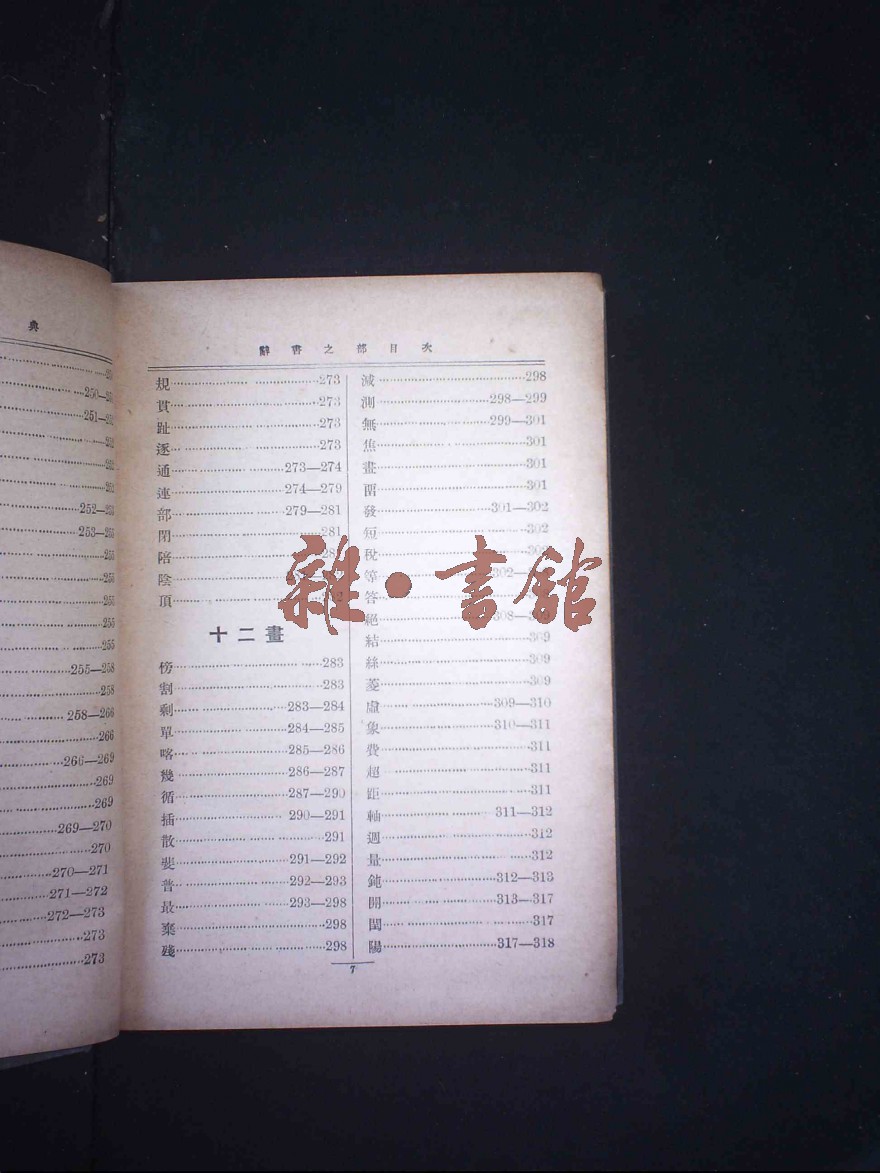 典
250
251
252
253
255
255
255
255
255
255—258
258
258—266
266
266—269
269
269
269—270
270
270—271
271—272
272—273
273
273
辭書之部目次
規 273
貫 273
趾 273
逐 273
通 273—274
連 274—279
部 279—281
閉 281
陪
陰
頂
十二畫
榜 283
割 283
剩 283—284
單 284—285
喀 285—286
幾 286—287
循 287—290
插 290—291
散 291
斐 291—292
普 292—293
最 293—298
棄 298
殘 298
減 298
測 298—299
無 299—301
焦 301
畫 301
畱 301
發 301—302
短 302
稅
等 302
答
絕 308
結 309
絲 309
菱 309
虛 309—310
象 310—311
費 311
超 311
距 311
軸 311—312
週 312
量 312
鈍 312—313
開 313—317
閏 317
陽 317—318
7
雜·書館